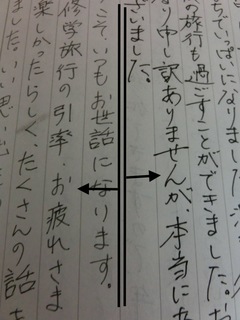 ちでいっぱいになりました
の旅行も過ごすことができました。
なり申し訳ありませんが、本当に
ざいました。
こそ、いつもお世話になります。
修学旅行の引率、お疲れさま
楽しかったらしく、たくさんの話
ました。いい思い出